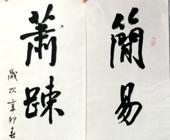 簡易
蕭踈
歲次辛卯春